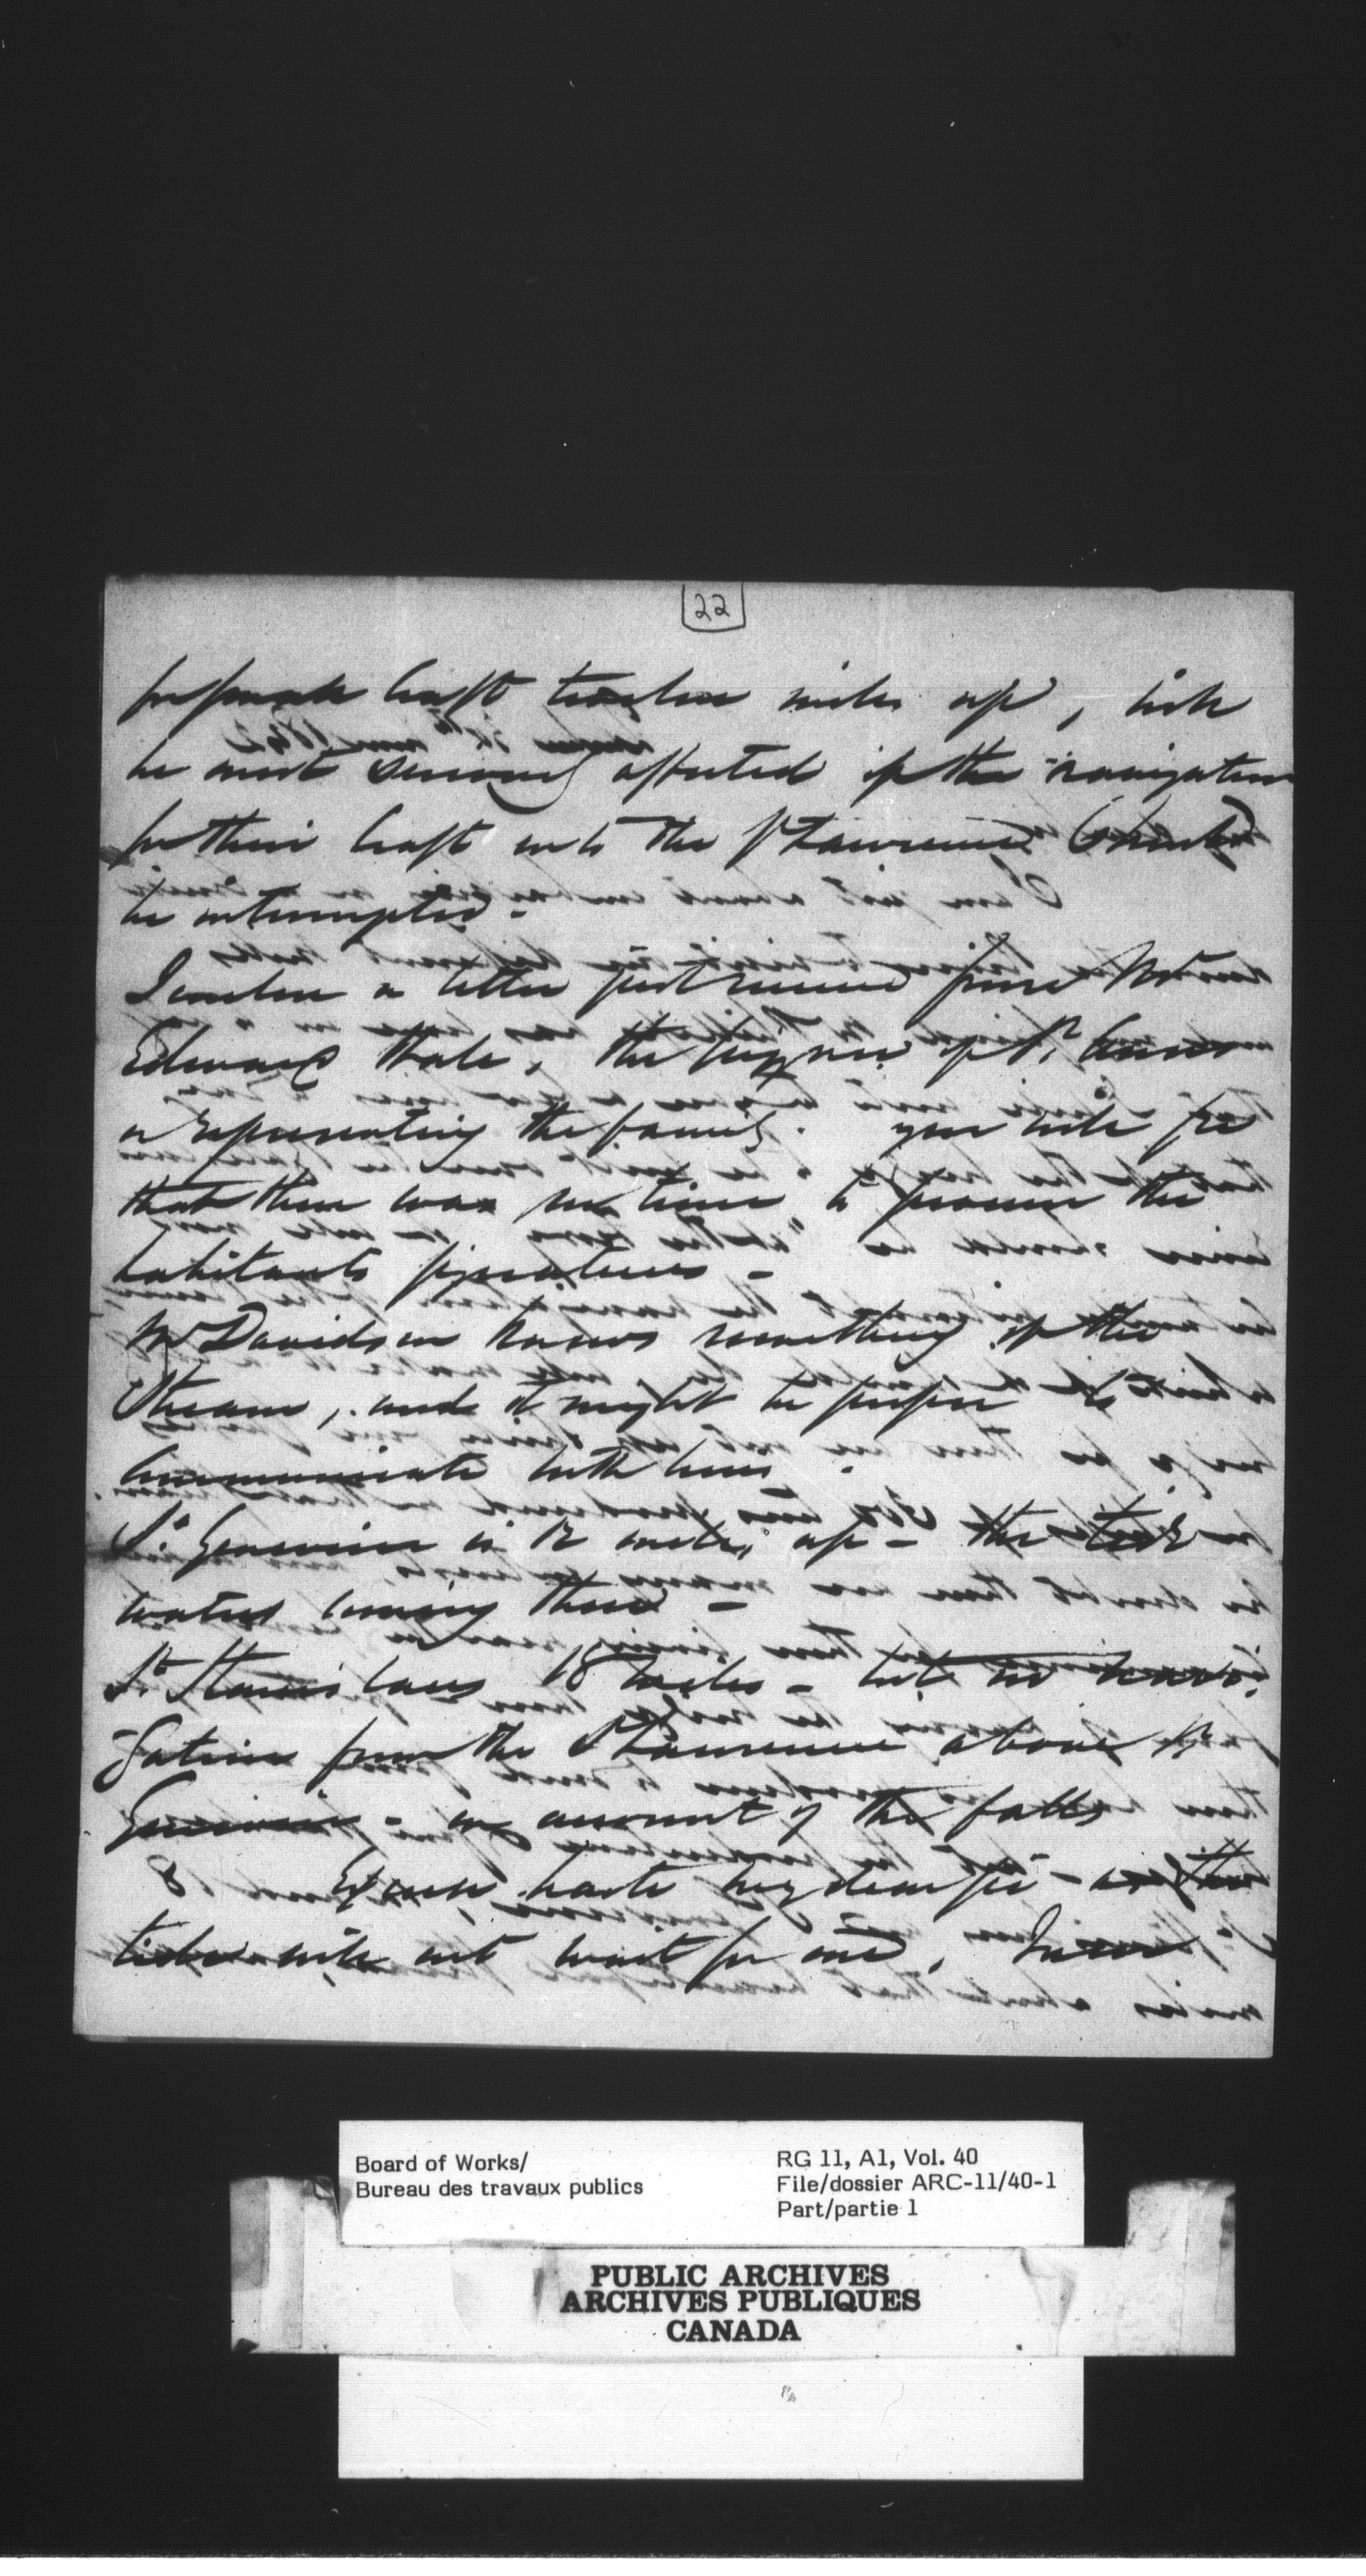 22
for small craft twelve miles up, will
be most seriously affected if the navigation
for their craft into the St Lawrence should
be interrupted -
I enclose a letter just received from Mr
Edward Hale, the Seigneur of St. Annes
or representing the family. you will see
that there was no time to procure the
habitants signatures -
Mr Davidson knows something of the
Stream, and it might be proper to
communicate with him.
St. Genevieve is 12 miles, up - the tide
waters coming there -
St. Stanislaus 18 miles - but no navi-
-gation from the St Lawrence above St.
Genevieve - on account of the falls
Excuse haste my dear Sir - as the
tides will not wait for me,
Board of Works/
Bureau des travaux publics
RG 11, A1, Vol. 40
File/dossier ARC-11/40-1
Part/partie 1
PUBLIC ARCHIVES
ARCHIVES PUBLIQUES
CANADA